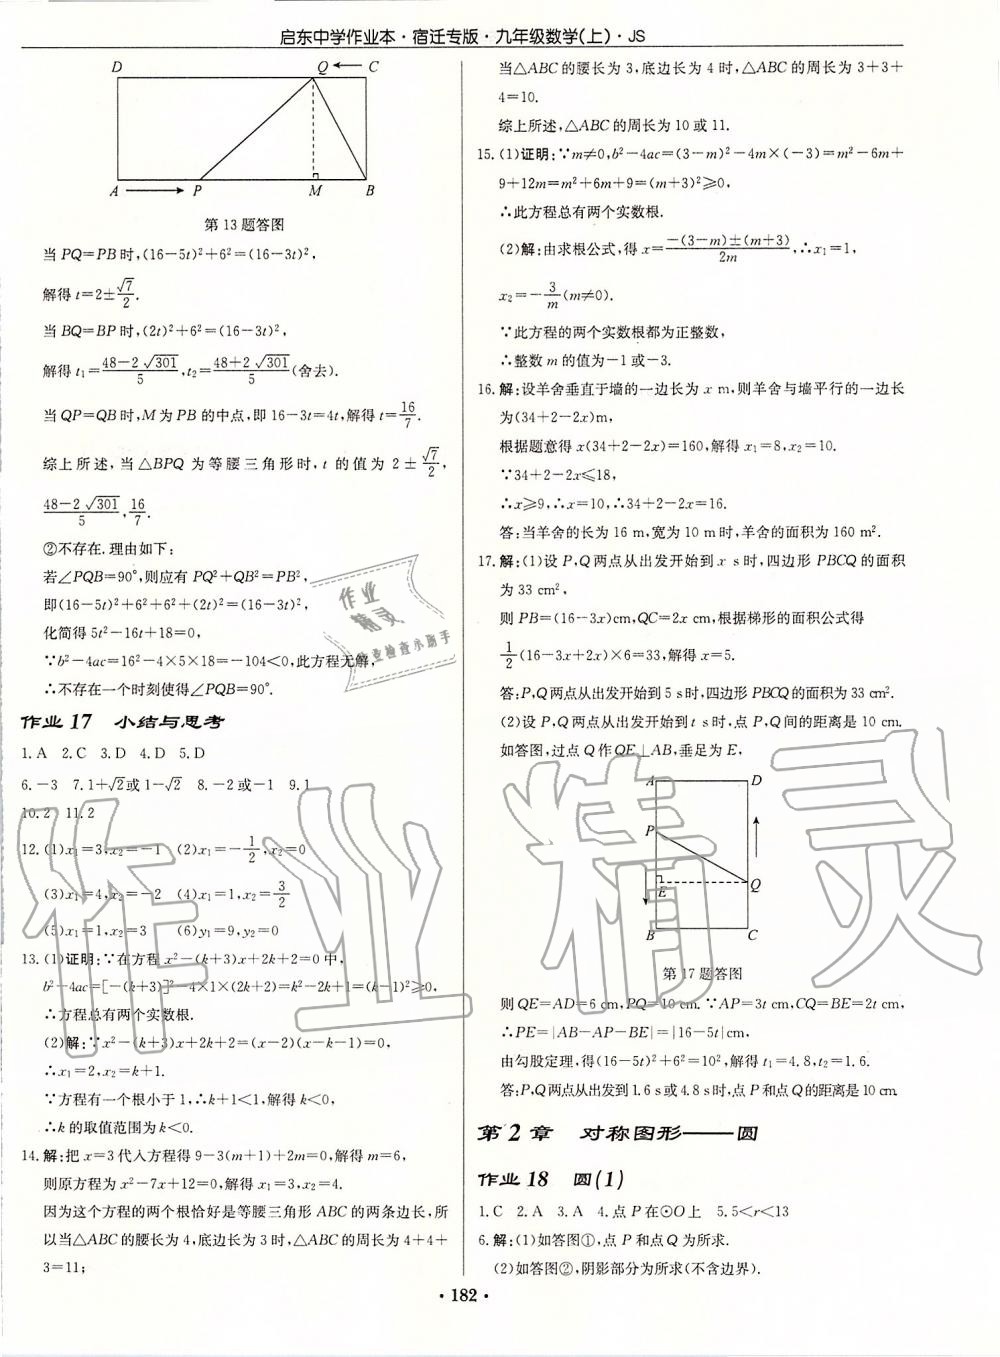 启东中学作业本·宿迁专版·九年级数学(上)·JS
D Q C
A P M B
第13题答图
当PQ=PB时,(16-5t)²+6²=(16-3t)²,
解得t=2±√7/2.
当BQ=BP时,(2t)²+6²=(16-3t)²,
解得t₁=(48-2√301)/5,t₂=(48+2√301)/5(舍去).
当QP=QB时,M为PB的中点,即16-3t=4t,解得t=16/7.
综上所述,当△BPQ为等腰三角形时,t的值为2±√7/2,
(48-2√301)/5,16/7.
②不存在.理由如下:
若∠PQB=90°,则应有PQ²+QB²=PB²,
即(16-5t)²+6²+6²+(2t)²=(16-3t)²,
化简得5t²-16t+18=0,
∵b²-4ac=16²-4×5×18=-104<0,此方程无解,
∴不存在一个时刻使得∠PQB=90°.
作业17 小结与思考
1.A 2.C 3.D 4.D 5.D
6.-3 7.1+√2或1-√2 8.-2或-1 9.1
10.2 11.2
12.(1)x₁=3,x₂=-1 (2)x₁=-1/2,x₂=0
(3)x₁=4,x₂=-2 (4)x₁=1,x₂=3/2
(5)x₁=1,x₂=3 (6)y₁=9,y₂=0
13.(1)证明:∵在方程x²-(k+3)x+2k+2=0中,
b²-4ac=[-(k+3)]²-4×1×(2k+2)=k²-2k+1=(k-1)²≥0,
∴方程总有两个实数根.
(2)解:∵x²-(k+3)x+2k+2=(x-2)(x-k-1)=0,
∴x₁=2,x₂=k+1.
∵方程有一个根小于1,∴k+1<1,解得k<0,
∴k的取值范围为k<0.
14.解:把x=3代入方程得9-3(m+1)+2m=0,解得m=6,
则原方程为x²-7x+12=0,解得x₁=3,x₂=4.
因为这个方程的两个根恰好是等腰三角形ABC的两条边长,所
以当△ABC的腰长为4,底边长为3时,△ABC的周长为4+4+
3=11;
当△ABC的腰长为3,底边长为4时,△ABC的周长为3+3+
4=10.
综上所述,△ABC的周长为10或11.
15.(1)证明:∵m≠0,b²-4ac=(3-m)²-4m×(-3)=m²-6m+
9+12m=m²+6m+9=(m+3)²≥0,
∴此方程总有两个实数根.
(2)解:由求根公式,得x=(-(3-m)±(m+3))/2m,∴x₁=1,
x₂=-3/m(m≠0).
∵此方程的两个实数根都为正整数,
∴整数m的值为-1或-3.
16.解:设羊舍垂直于墙的一边长为x m,则羊舍与墙平行的一边长
为(34+2-2x)m,
根据题意得x(34+2-2x)=160,解得x₁=8,x₂=10.
∵34+2-2x≤18,
∴x≥9,∴x=10,∴34+2-2x=16.
答:当羊舍的长为16 m,宽为10 m时,羊舍的面积为160 m².
17.解:(1)设P,Q两点从出发开始到x s时,四边形PBCQ的面积
为33 cm²,
则PB=(16-3x)cm,QC=2x cm,根据梯形的面积公式得
1/2(16-3x+2x)×6=33,解得x=5.
答:P,Q两点从出发开始到5 s时,四边形PBCQ的面积为33 cm².
(2)设P,Q两点从出发开始到t s时,点P,Q间的距离是10 cm.
如答图,过点Q作QE⊥AB,垂足为E,
A D
P
E Q
B C
第17题答图
则QE=AD=6 cm,PQ=10 cm.∵AP=3t cm,CQ=BE=2t cm,
∴PE=|AB-AP-BE|=|16-5t|cm,
由勾股定理,得(16-5t)²+6²=10²,解得t₁=4.8,t₂=1.6.
答:P,Q两点从出发到1.6 s或4.8 s时,点P和点Q的距离是10 cm.
第2章 对称图形——圆
作业18 圆(1)
1.C 2.A 3.A 4.点P在⊙O上 5.5<r<13
6.解:(1)如答图①,点P和点Q为所求.
(2)如答图②,阴影部分为所求(不含边界).
·182·
作业精灵
作业
精灵
作业检查小助手